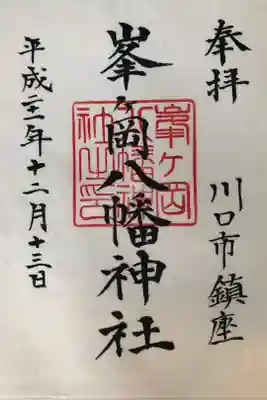 奉拝
川口市鎮座
峯ヶ岡八幡神社
平成二十一年十二月十三日
峯ヶ岡八幡神社之印